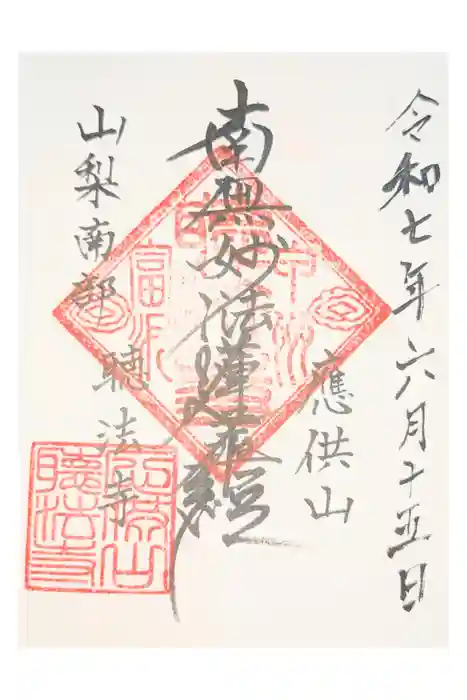 令和七年六月十五日
應供山
南無妙法蓮華経
山梨南部
聴法寺
應供山
聴法寺